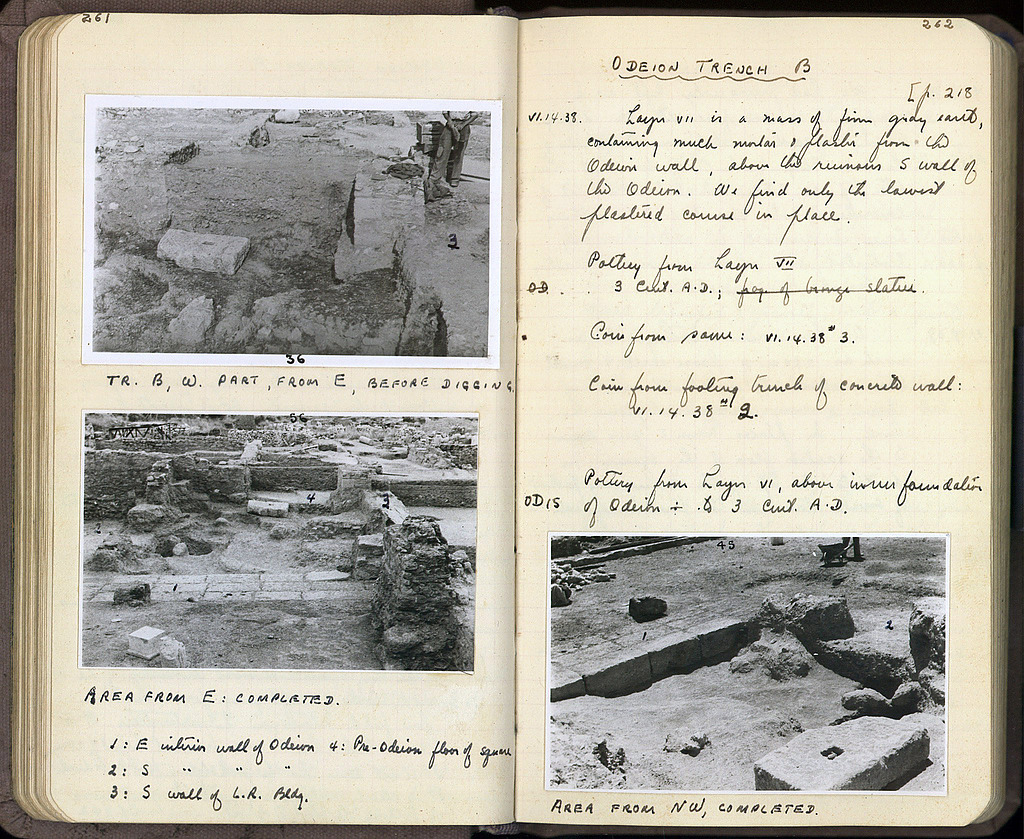 261
36
TR. B, W. PART, FROM E, BEFORE DIGGING
3
56
4
2
1
AREA FROM E: COMPLETED.
1: E interior wall of Odeion 4: Pre-Odeion floor of square
2: S " " "
3: S wall of L.R. Bldg.
262
ODEION TRENCH B
[p. 218
VI.14.38. Layer VII is a mass of firm gray earth,
containing much mortar & plaster from the
Odeion wall, above the ruinous S wall of
the Odeion. We find only the lowest
plastered course in place.
Pottery from Layer VII
OD. 3 Cent. A.D.; frag of bronze statue.
Coin from same: VI.14.38 # 3.
Coin from footing trench of concrete wall:
VI.14.38 # 2.
Pottery from Layer VI, above inner foundation
OD 15 of Odeion ÷ . 3 Cent. A.D.
45
1
2
AREA FROM NW, COMPLETED.